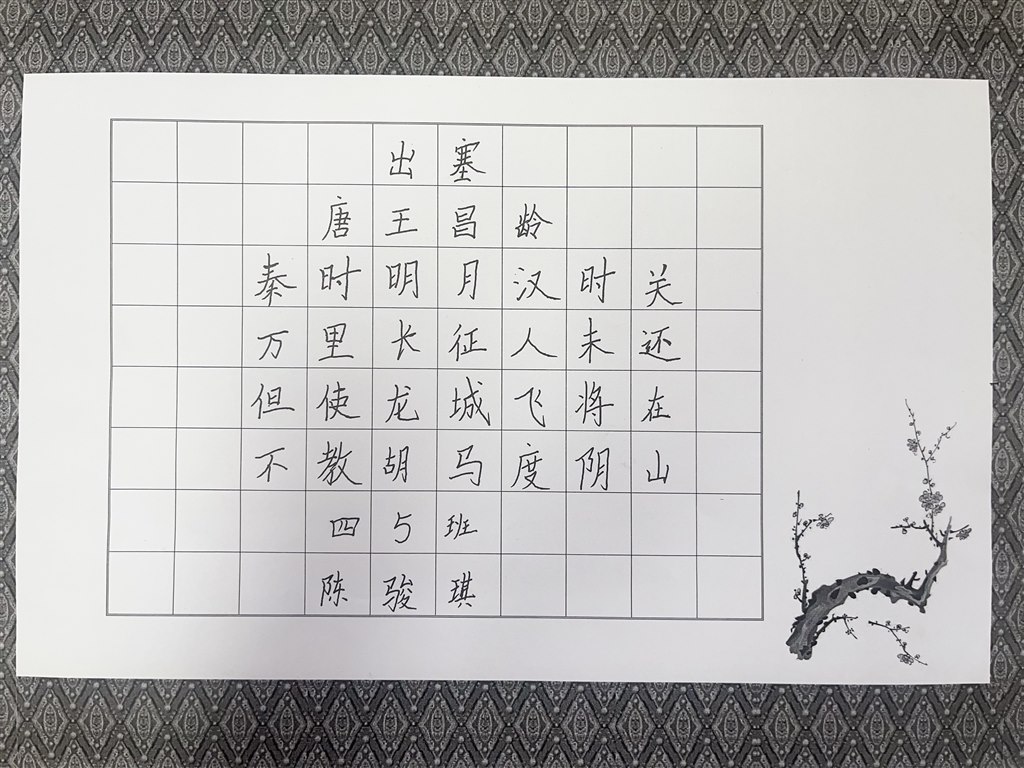 出塞
唐王昌龄
秦时明月汉时关
万里长征人未还
但使龙城飞将在
不教胡马度阴山
四5班
陈骏琪